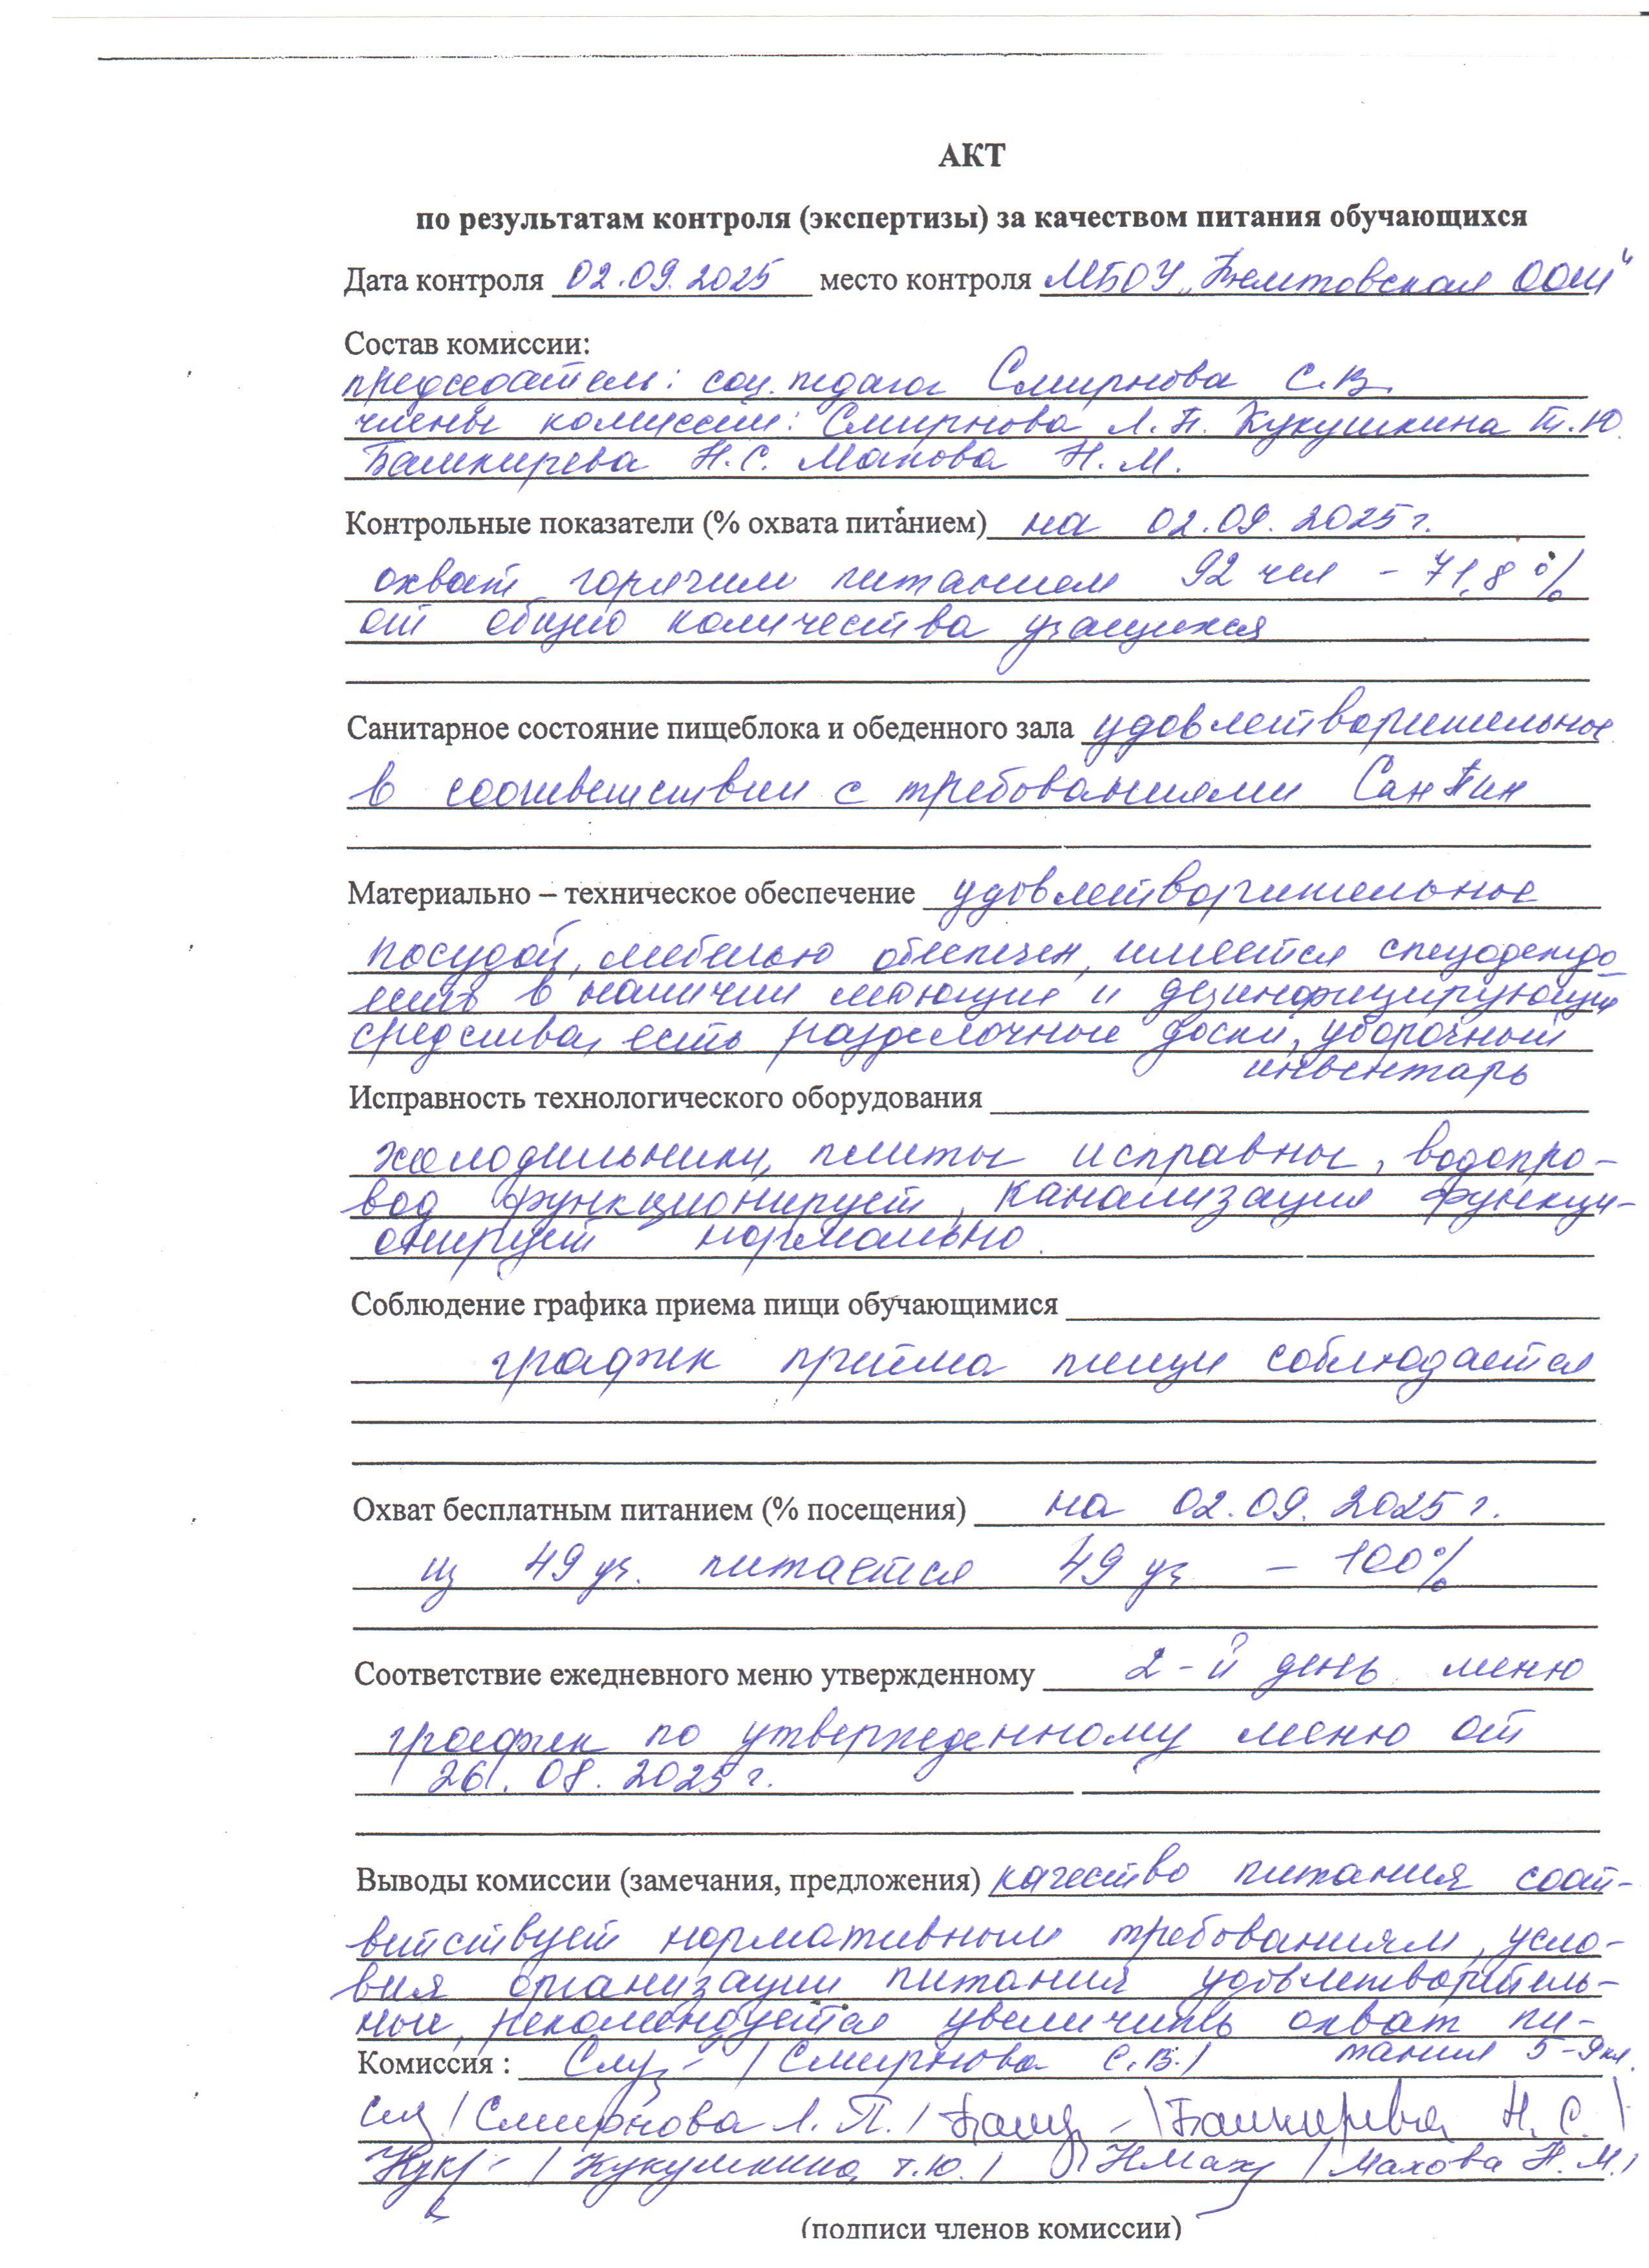 АКТ
по результатам контроля (экспертизы) за качеством питания обучающихся
Дата контроля 02.09.2025 место контроля МБОУ „Бентовская ООШ"
Состав комиссии:
председатель: соц. педагог Смирнова С.В.
члены комиссии: Смирнова Л.П. Кукушкина Т.Ю.
Башкирева Н.С. Махова Н.М.
Контрольные показатели (% охвата питанием) на 02.09.2025 г.
охват горячим питанием 92 чел – 71,8 %
от общего количества учащихся
Санитарное состояние пищеблока и обеденного зала удовлетворительное
в соответствии с требованиями СанПин
Материально – техническое обеспечение удовлетворительное
посудой, мебелью обеспечен, имеется спецодежда
есть в наличии моющие и дезинфицирующие
средства, есть разделочные доски, уборочный
инвентарь
Исправность технологического оборудования
холодильники, плиты исправны, водопро-
вод функционирует, канализация функци-
онирует нормально.
Соблюдение графика приема пищи обучающимися
график приёма пищи соблюдается
Охват бесплатным питанием (% посещения) на 02.09.2025 г.
из 49 уч. питается 49 уч – 100%
Соответствие ежедневного меню утвержденному 2-й день меню
график по утвержденному меню от
26.08.2025 г.
Выводы комиссии (замечания, предложения) качество питания соот-
ветствует нормативным требованиям, усло-
вия организации питания удовлетворитель-
ные, рекомендуется увеличить охват пи-
тания 5-9 кл.
Комиссия : / Смирнова С.В. /
/ Смирнова Л.П. / \ Башкирева Н.С. \
/ Кукушкина Т.Ю. / / Махова Н.М. /
(подписи членов комиссии)